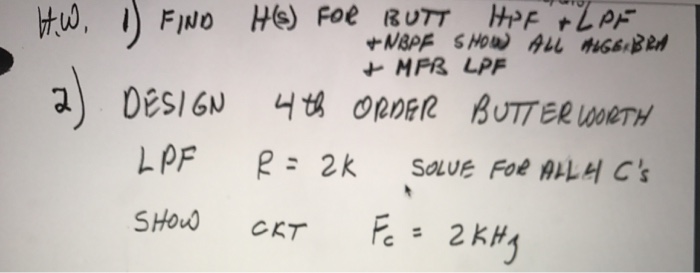 H.W. 1) FIND H(s) FOR BUTT HPF + LPF
+ NBPF SHOW ALL ALGEBRA
+ MFB LPF
2) DESIGN 4th ORDER BUTTERWORTH
LPF R = 2K SOLVE FOR ALL 4 C's
SHOW CKT Fc = 2KHz